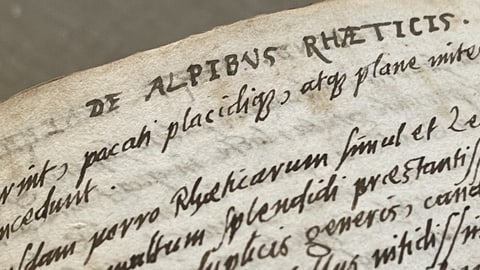 DE ALPIBVS RHÆTICIS.
rint, pacati placidiq́ꝫ, atqꝫ plane mite
ncedunt.
sdam porro Rhæticarum simul et Le
multum splendidi præstantiss
uplicis generis, cand
nitidissim